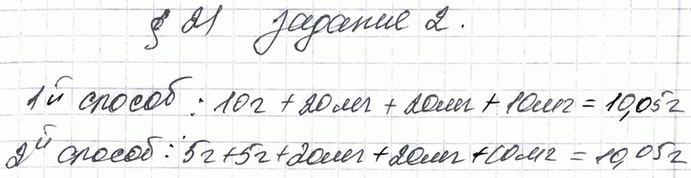 § 21 задание 2.
1й способ: 10г + 20мг + 20мг + 10мг = 10,05г
2й способ: 5г + 5г + 20мг + 20мг + 10мг = 10,05г